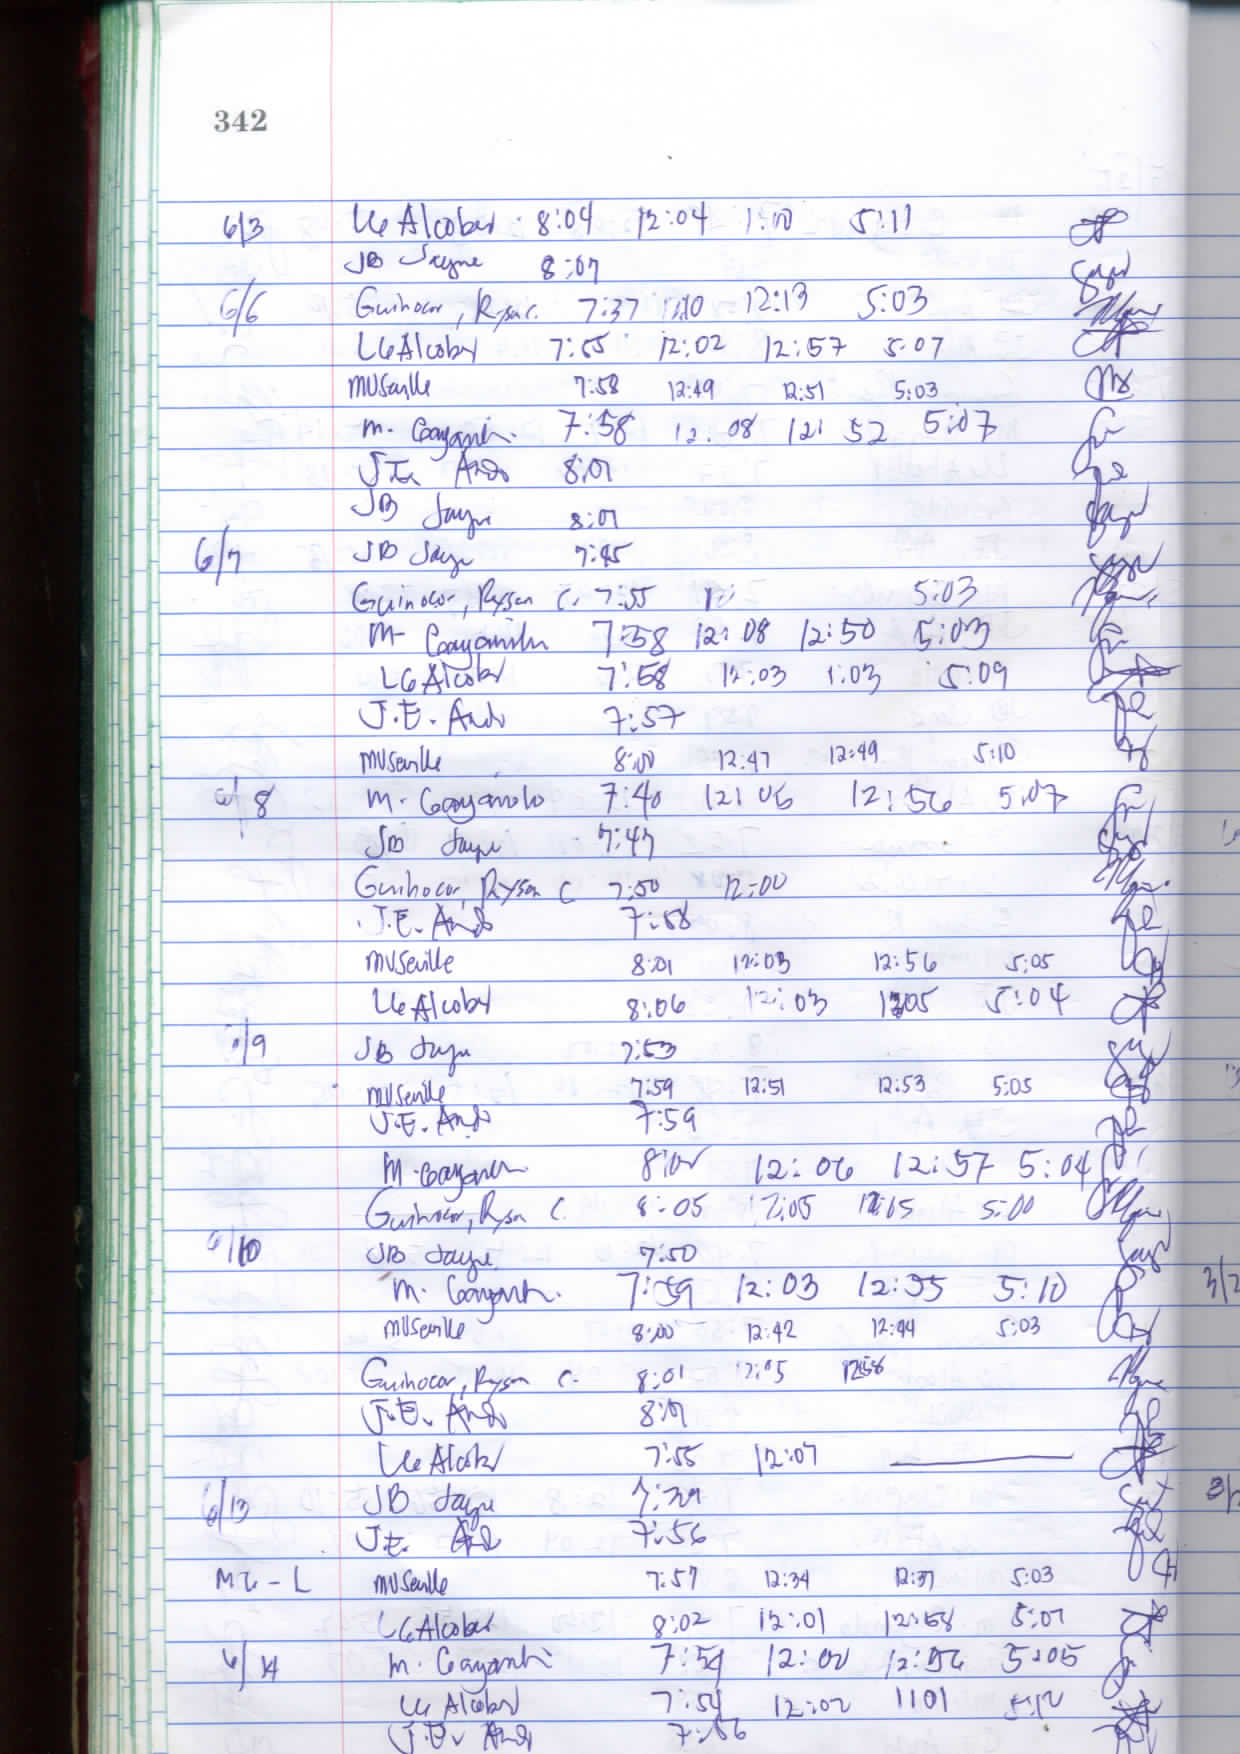 342
6/3 LG Alcober 8:04 12:04 1:00 5:11
JB Jayne 8:07
6/6 Guihocor, Ryan C. 7:37 12:13 5:03
LG Alcober 7:55 12:02 12:57 5:07
MVSeville 7:58 12:49 12:51 5:03
M. 7:58 12:08 12:52 5:07
J.E. Ando 8:01
JB Jayne 8:01
6/7 JB Jayne 7:45
Guihocor, Rysan C. 7:55 5:03
M. 7:58 12:08 12:50 5:03
LG Alcober 7:58 12:03 1:03 5:09
J.E. Ando 7:57
MVSeville 8:00 12:47 12:49 5:10
6/8 M. Caayanolo 7:40 12:06 12:56 5:07
JB Jayne 7:47
Guihocor, Rysan C 7:50 12:00
J.E. Ando 7:58
MVSeville 8:01 12:03 12:56 5:05
LG Alcober 8:06 12:03 5:04
/9 JB Jayne 7:53
MVSeville 7:59 12:51 12:53 5:05
J.E. Ando 7:59
M. 8:00 12:06 12:57 5:04
Guihocor, Rysan C. 8:05 12:05 12:15 5:00
6/10 JB Jayne 7:50
M. 7:59 12:03 12:35 5:10
MVSeville 8:00 12:42 12:44 5:03
Guihocor, Rysan C. 8:01 12:05 12:56
J.E. Ando 8:01
LG Alcober 7:55 12:07
6/13 JB Jayne 7:39
J.E. Ando 7:56
MVSeville 7:57 12:34 12:37 5:03
LG Alcober 8:02 12:01 12:58 5:07
6/14 M. 7:54 12:00 12:56 5:05
LG Alcober 7:54 12:02 1:01 5:12
J.E. Ando 7:56